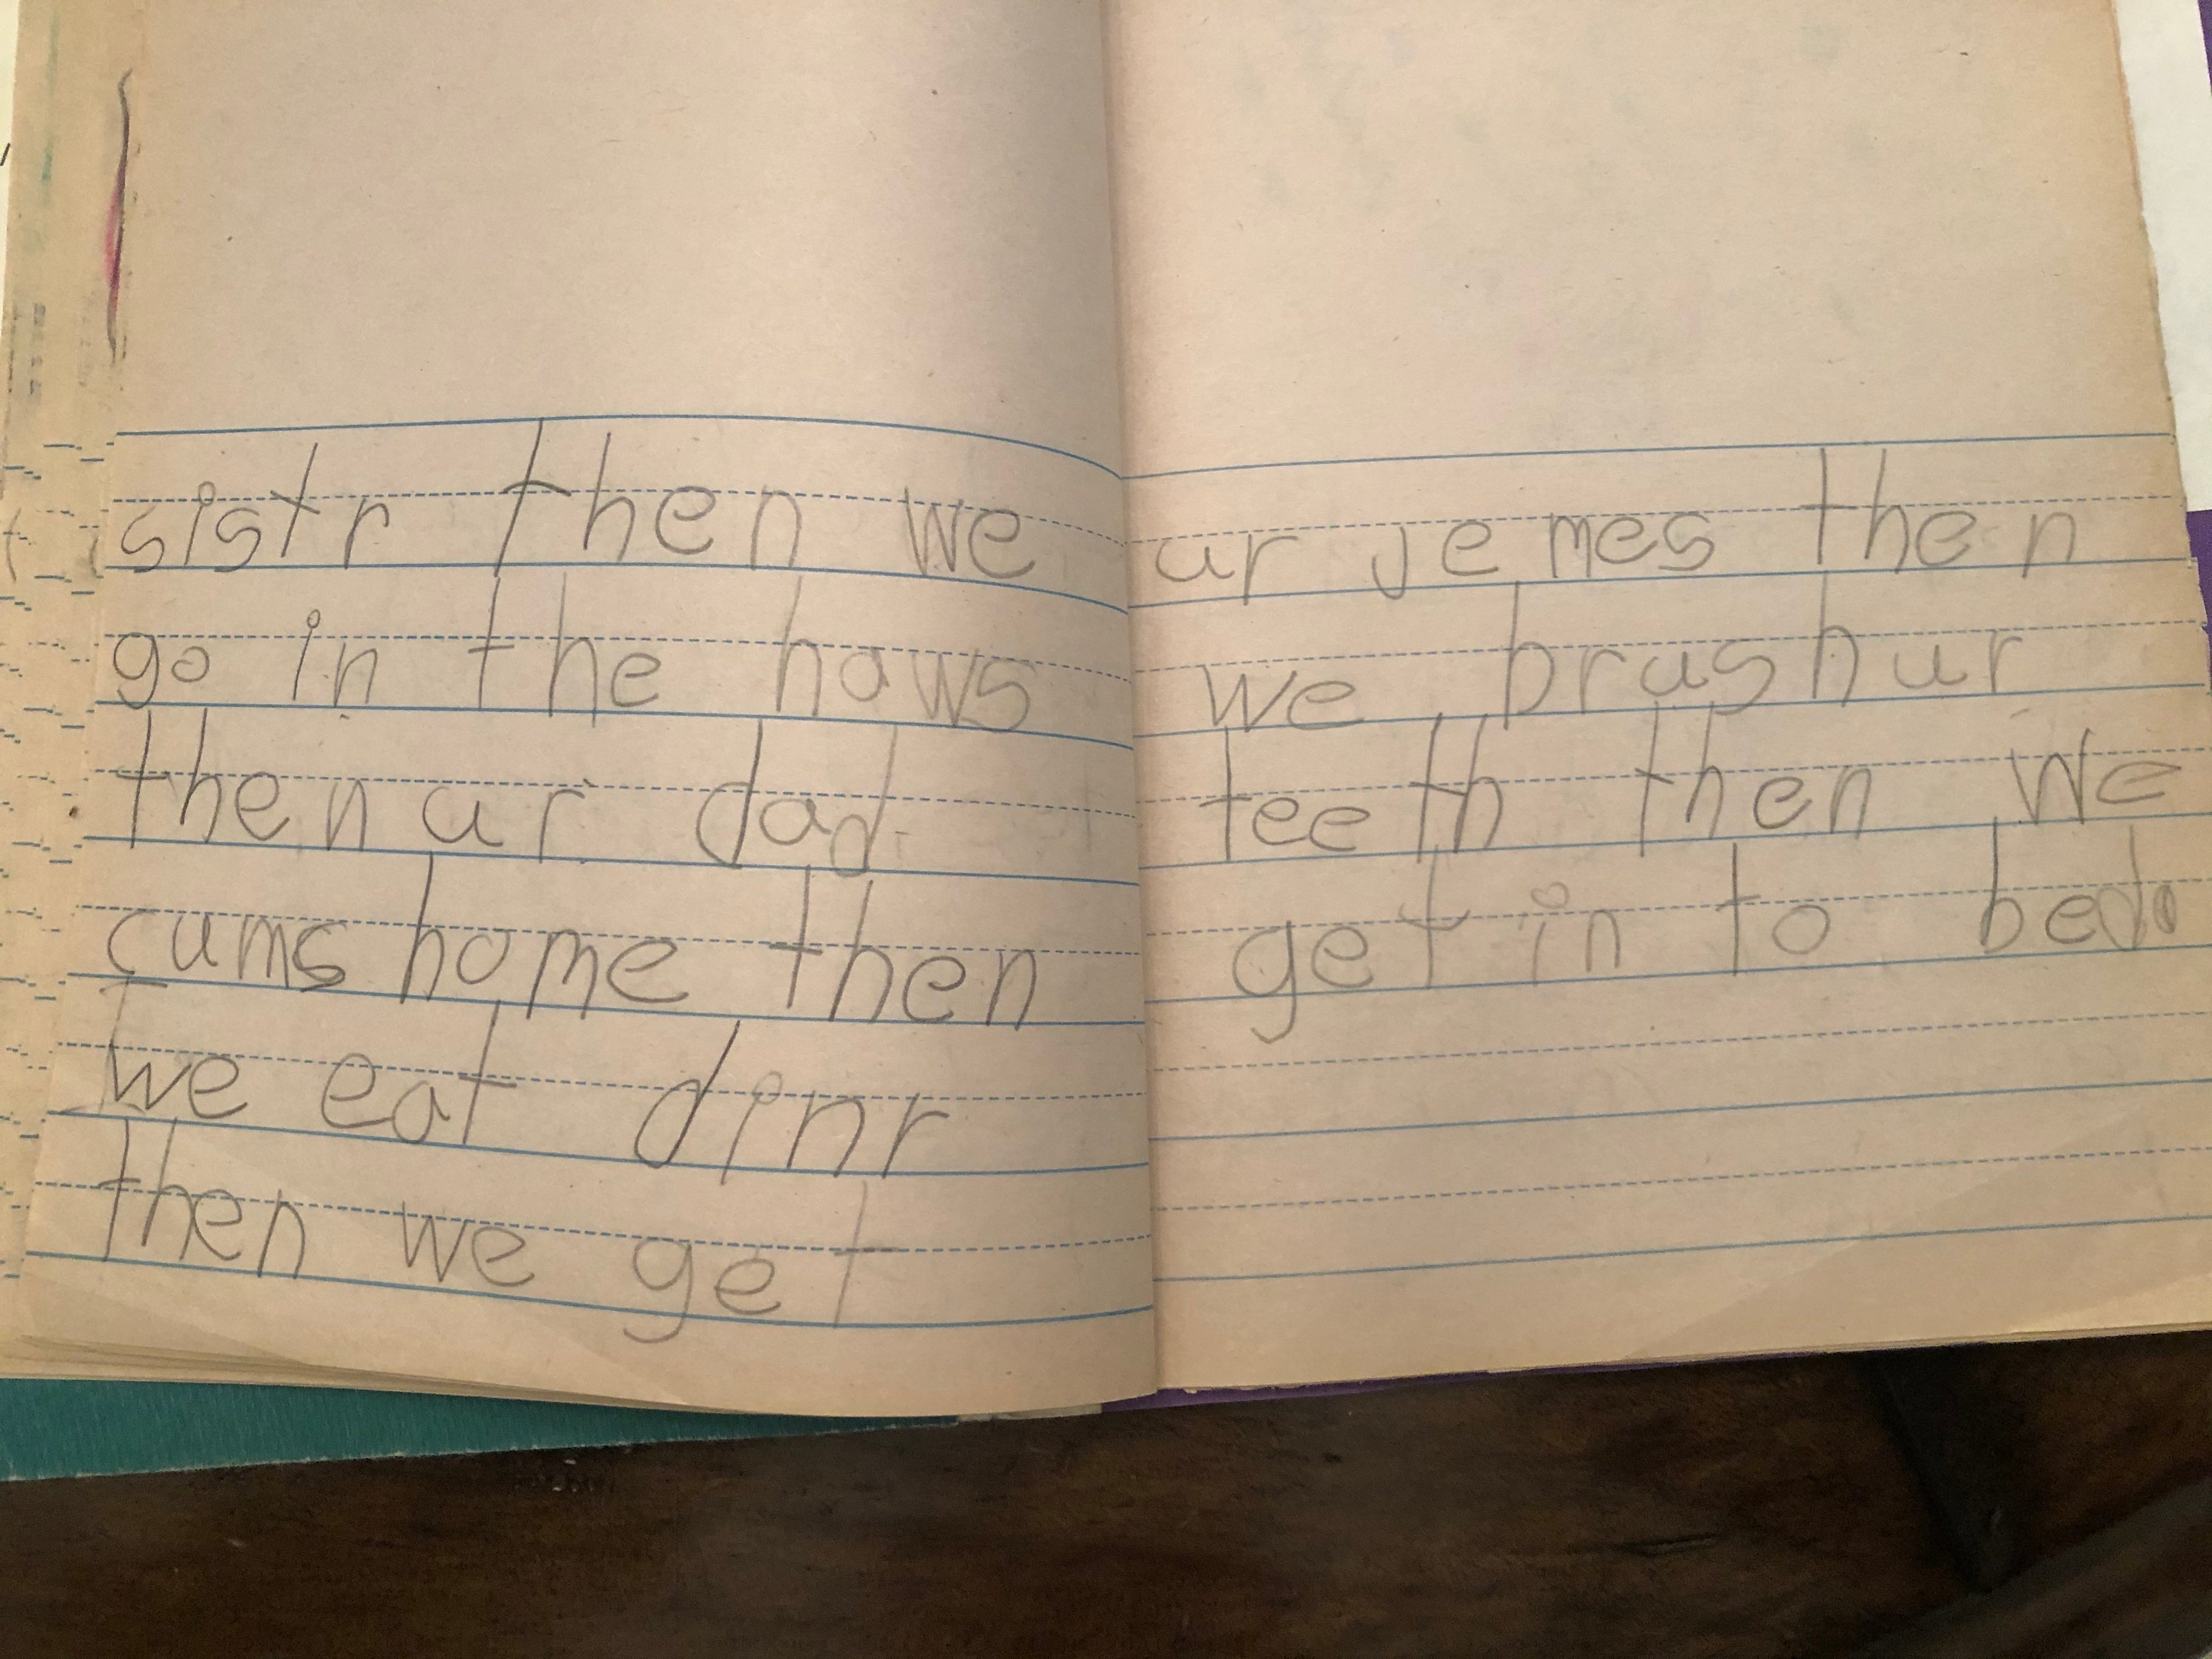 sistr then we
go in the haws
then ur dad
cums home then
we eat dinr
then we get
ur jemes then
we brush ur
teeth then we
get in to bed.